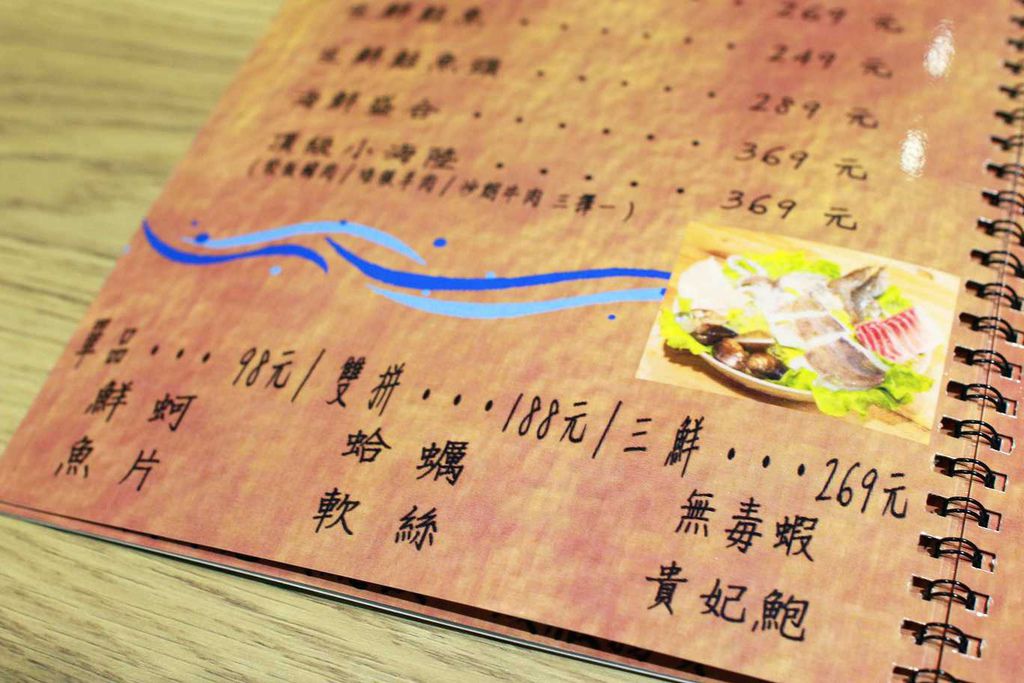 269 元
鮮鮭魚 . . . . . . 249 元
鮮鮭魚頭 . . . . . . 289 元
海鮮盛合 . . . . . . 369 元
頂級小海陸 . . . . . . 369 元
羊肉/沙朗牛肉 三擇一)
單品...98元/雙拼...188元/三鮮...269元
鮮蚵 蛤蠣 無毒蝦
魚片 軟絲 貴妃鮑